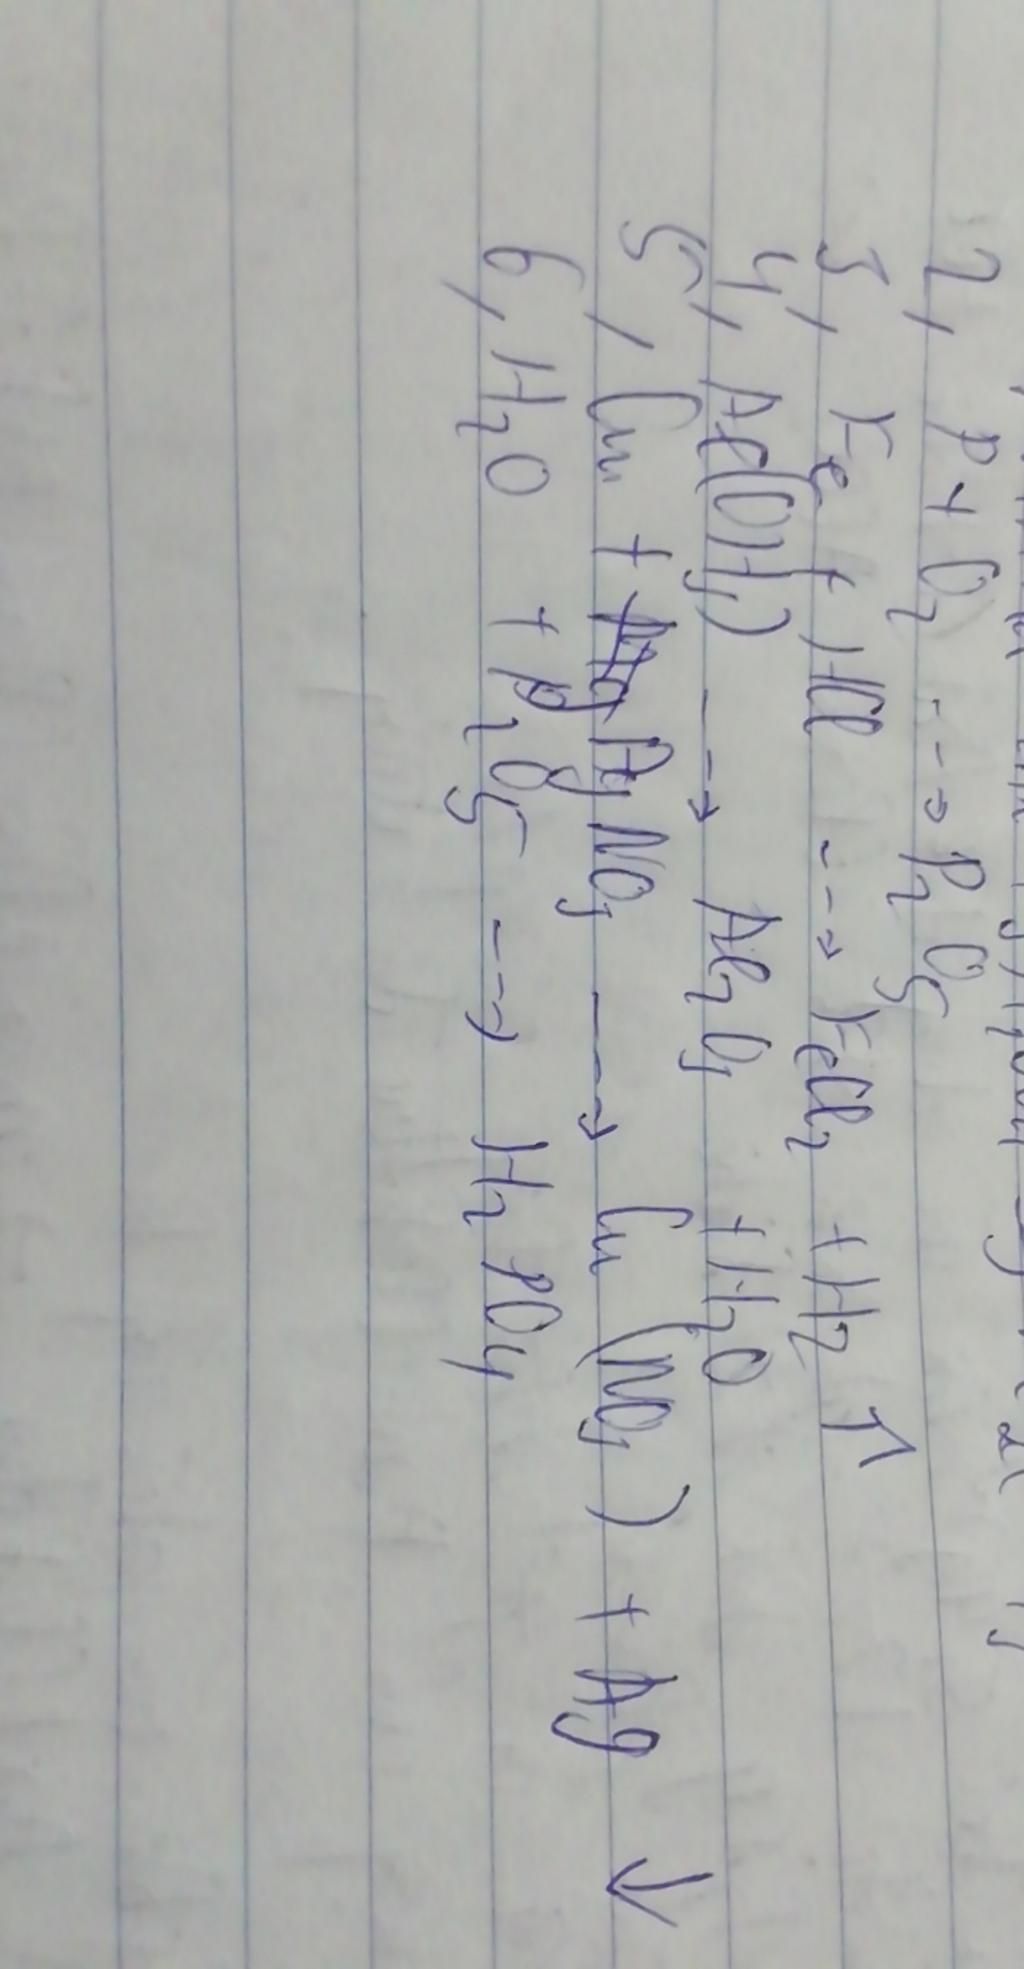 2, P + O2 --→ P2O5
3, Fe + HCl ---→ FeCl2 + H2 ↑
4, Al(OH3) --→ Al2O3 + H2O
5, Cu + AgNO3 ---→ Cu(NO3) + Ag ↓
6, H2O + P2O5 --→ H2PO4